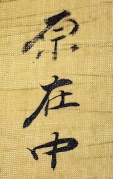 原在中